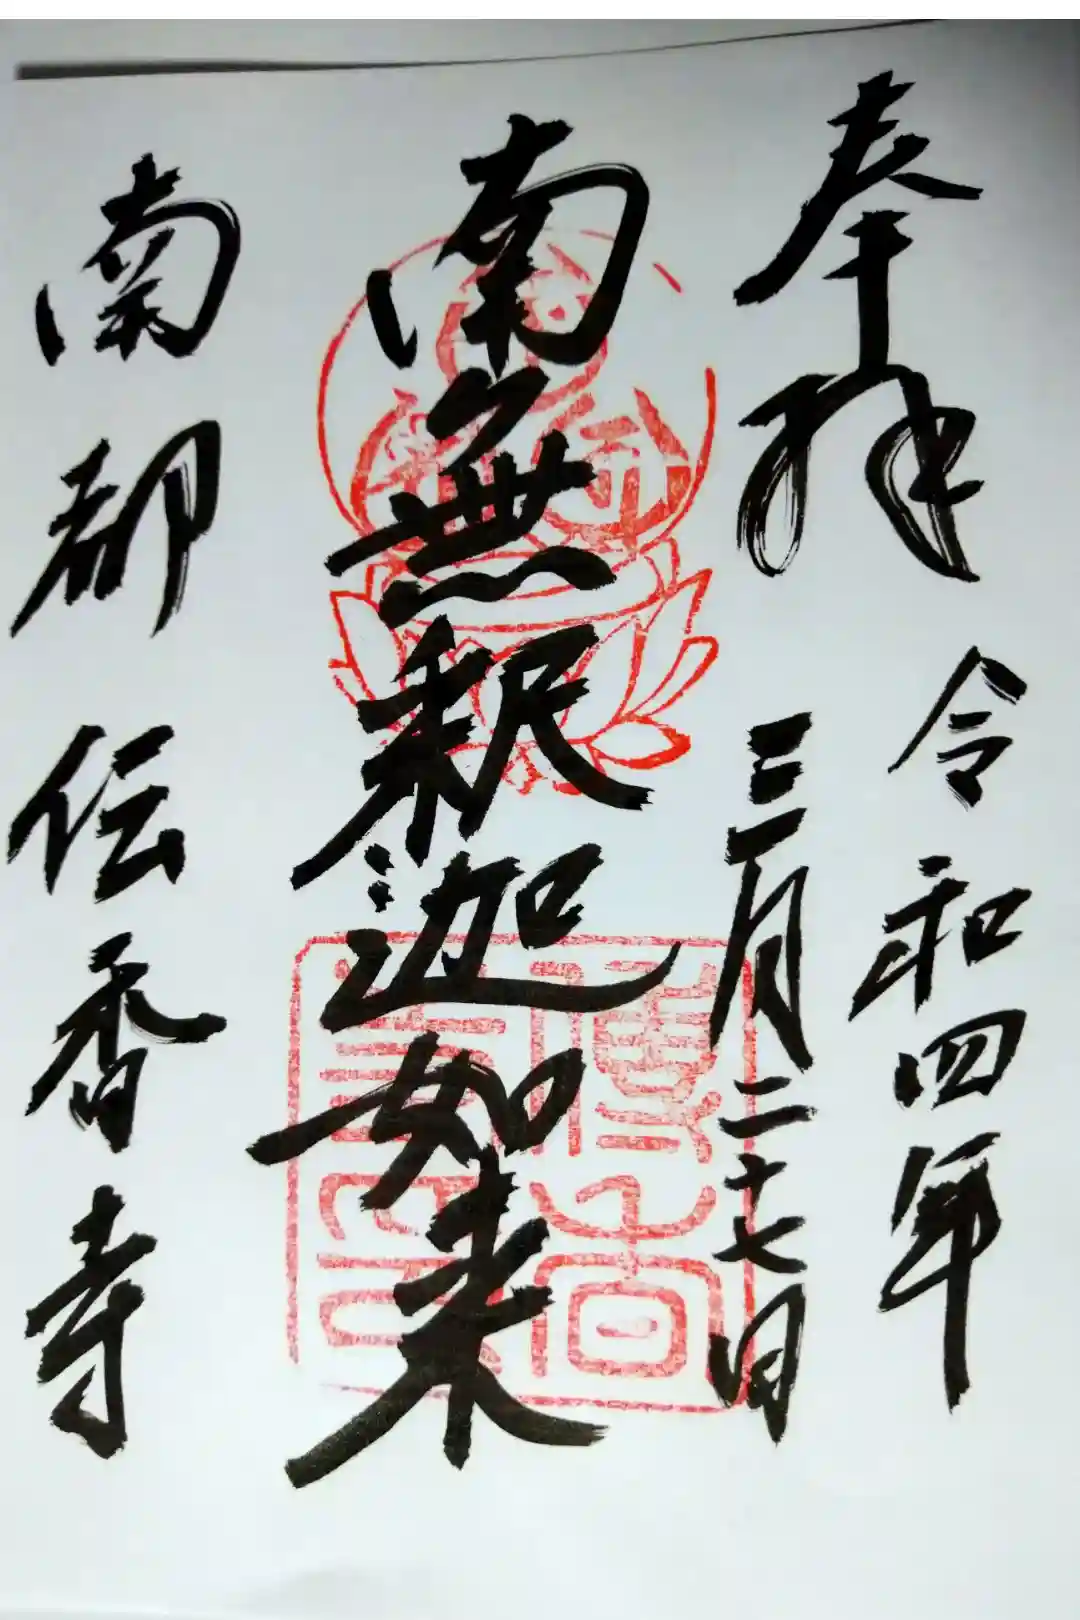 奉拝
令和四年
三月二十七日
南無釈迦如来
南都
伝香寺